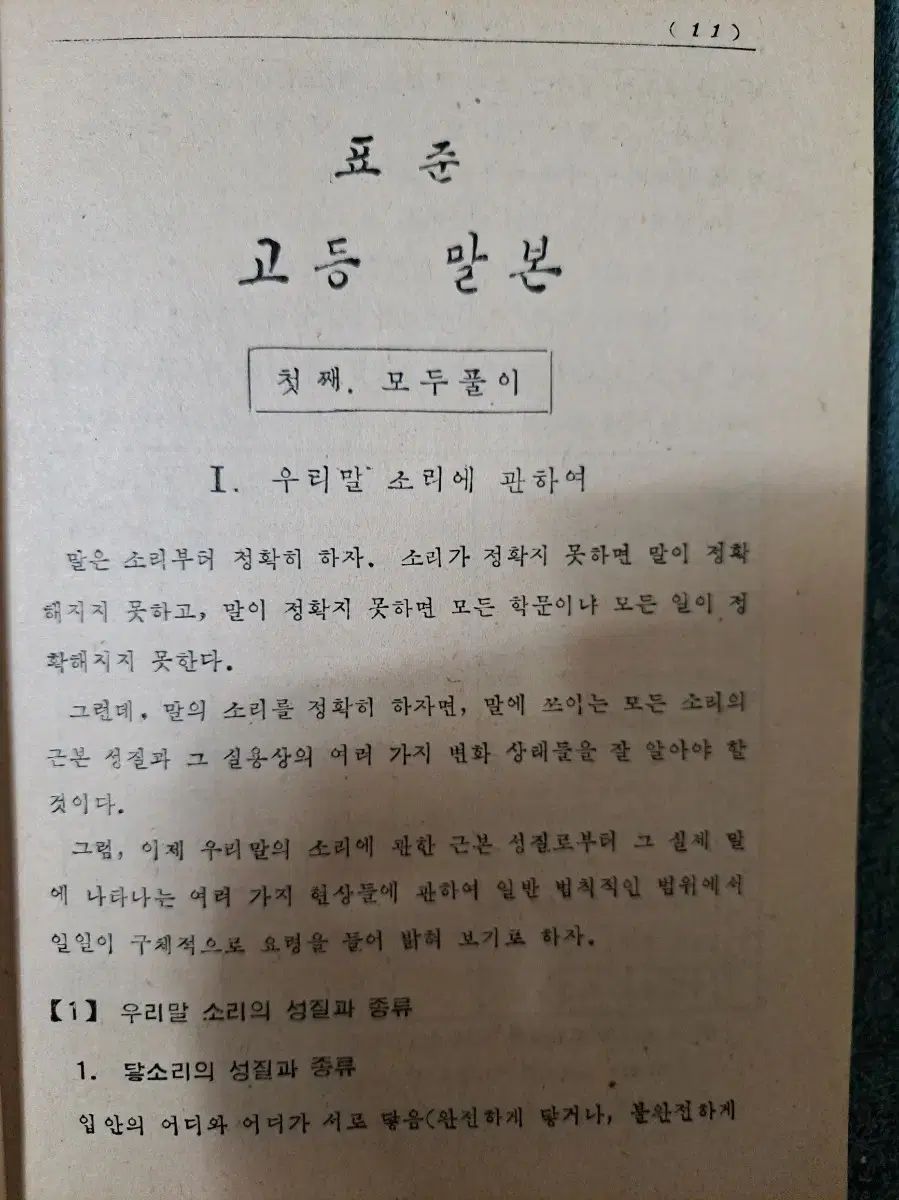 (11)
표 준
고등 말본
첫째. 모두풀이
I. 우리말 소리에 관하여
말은 소리부터 정확히 하자. 소리가 정확지 못하면 말이 정확
해지지 못하고, 말이 정확지 못하면 모든 학문이나 모든 일이 정
확해지지 못한다.
그런데, 말의 소리를 정확히 하자면, 말에 쓰이는 모든 소리의
근본 성질과 그 실용상의 여러 가지 변화 상태들을 잘 알아야 할
것이다.
그럼, 이제 우리말의 소리에 관한 근본 성질로부터 그 실제 말
에 나타나는 여러 가지 현상들에 관하여 일반 법칙적인 범위에서
일일이 구체적으로 요령을 들어 밝혀 보기로 하자.
【1】 우리말 소리의 성질과 종류
1. 닿소리의 성질과 종류
입안의 어디와 어디가 서로 닿음(완전하게 닿거나, 불완전하게